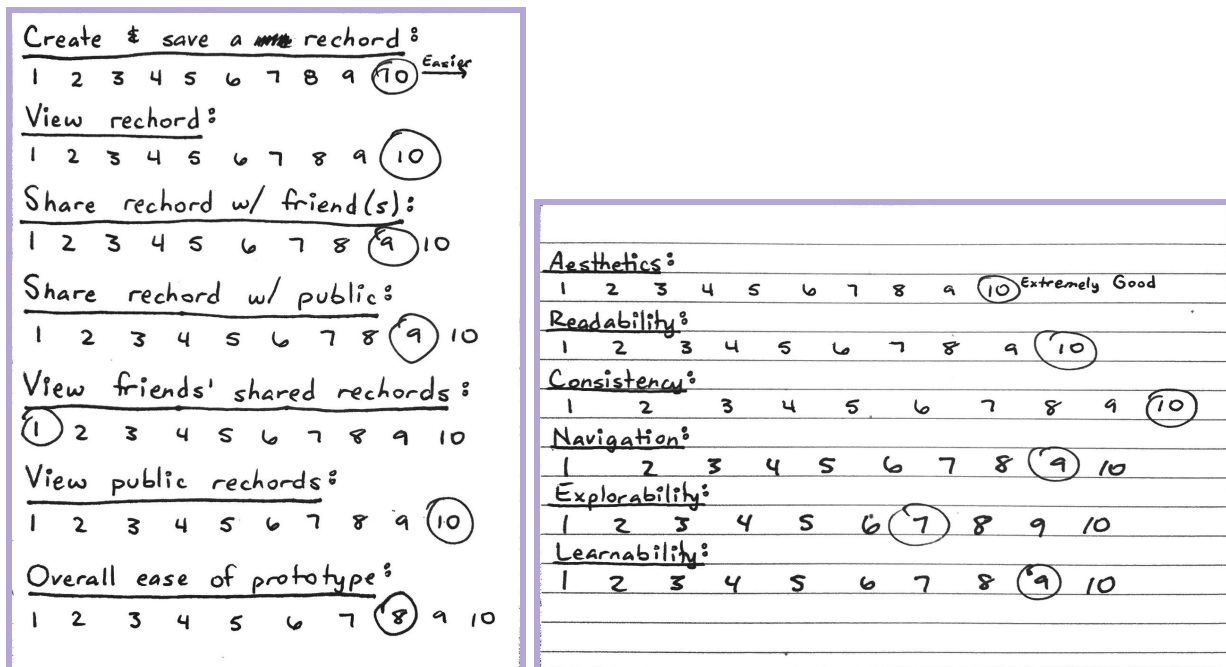 Create & save a rechord:
1 2 3 4 5 6 7 8 9 10 Easier
View rechord:
1 2 3 4 5 6 7 8 9 10
Share rechord w/ friend(s):
1 2 3 4 5 6 7 8 9 10
Share rechord w/ public:
1 2 3 4 5 6 7 8 9 10
View friends' shared rechords:
1 2 3 4 5 6 7 8 9 10
View public rechords:
1 2 3 4 5 6 7 8 9 10
Overall ease of prototype:
1 2 3 4 5 6 7 8 9 10
Aesthetics:
1 2 3 4 5 6 7 8 9 10 Extremely Good
Readability:
1 2 3 4 5 6 7 8 9 10
Consistency:
1 2 3 4 5 6 7 8 9 10
Navigation:
1 2 3 4 5 6 7 8 9 10
Explorability:
1 2 3 4 5 6 7 8 9 10
Learnability:
1 2 3 4 5 6 7 8 9 10